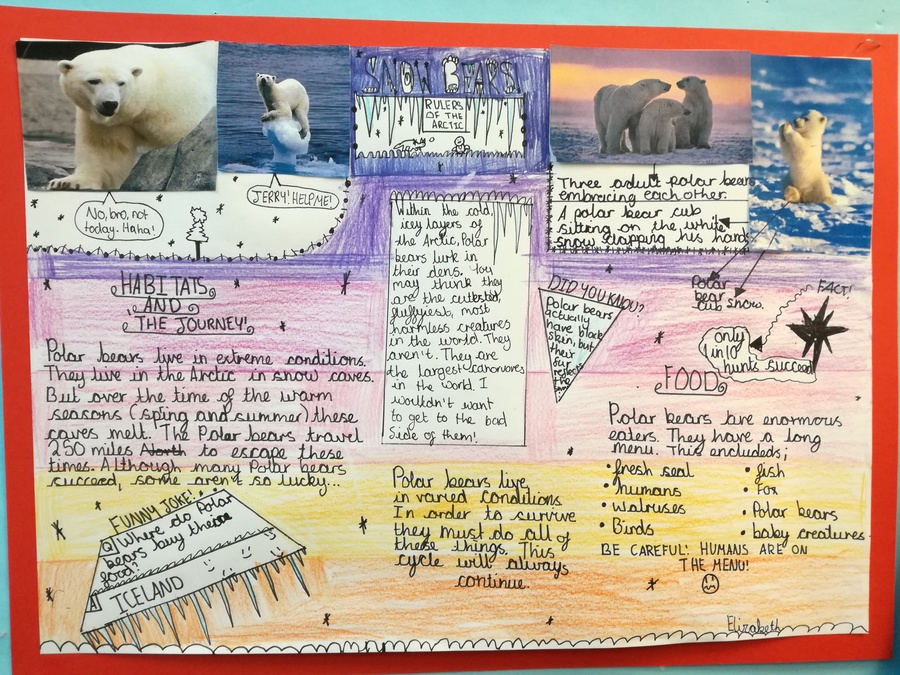 SNOW BEARS
RULERS
OF THE
ARCTIC
No, bro, not
today. Haha!
JERRY! HELP ME!
Three adult polar bears
embracing each other.
A polar bear cub
sitting on the white
snow clapping his hands
Polar
bear
cub
snow.
HABITATS
AND
THE JOURNEY!
Polar bears live in extreme conditions.
They live in the Arctic in snow caves.
But over the time of the warm
seasons (spring and summer) these
caves melt. The Polar bears travel
250 miles North to escape these
times. Although many Polar bears
succeed, some aren't so lucky...
FUNNY JOKE!
Q) Where do Polar
bears buy their
food?
A) ICELAND
Within the cold,
icy layers of
the Arctic, Polar
bears lurk in
their dens. You
may think they
are the cutest,
fluffyiest, most
harmless creatures
in the world. They
aren't. They are
the largest caronvores
in the world. I
wouldn't want
to get to the bad
side of them!
Polar bears live
in varied conditions
In order to survive
they must do all of
these things. This
cycle will always
continue.
DID YOU KNOW?
Polar bears
actually
have black
skin, but
their
fur
reflects
the
FACT!
only
1 in 10
hunts succeed
FOOD
Polar bears are enormous
eaters. They have a long
menu. This encludeds;
• fresh seal
• humans
• walruses
• Birds
• fish
• Fox
• Polar bears
• baby creatures.
BE CAREFUL! HUMANS ARE ON
THE MENU!
Elizabeth